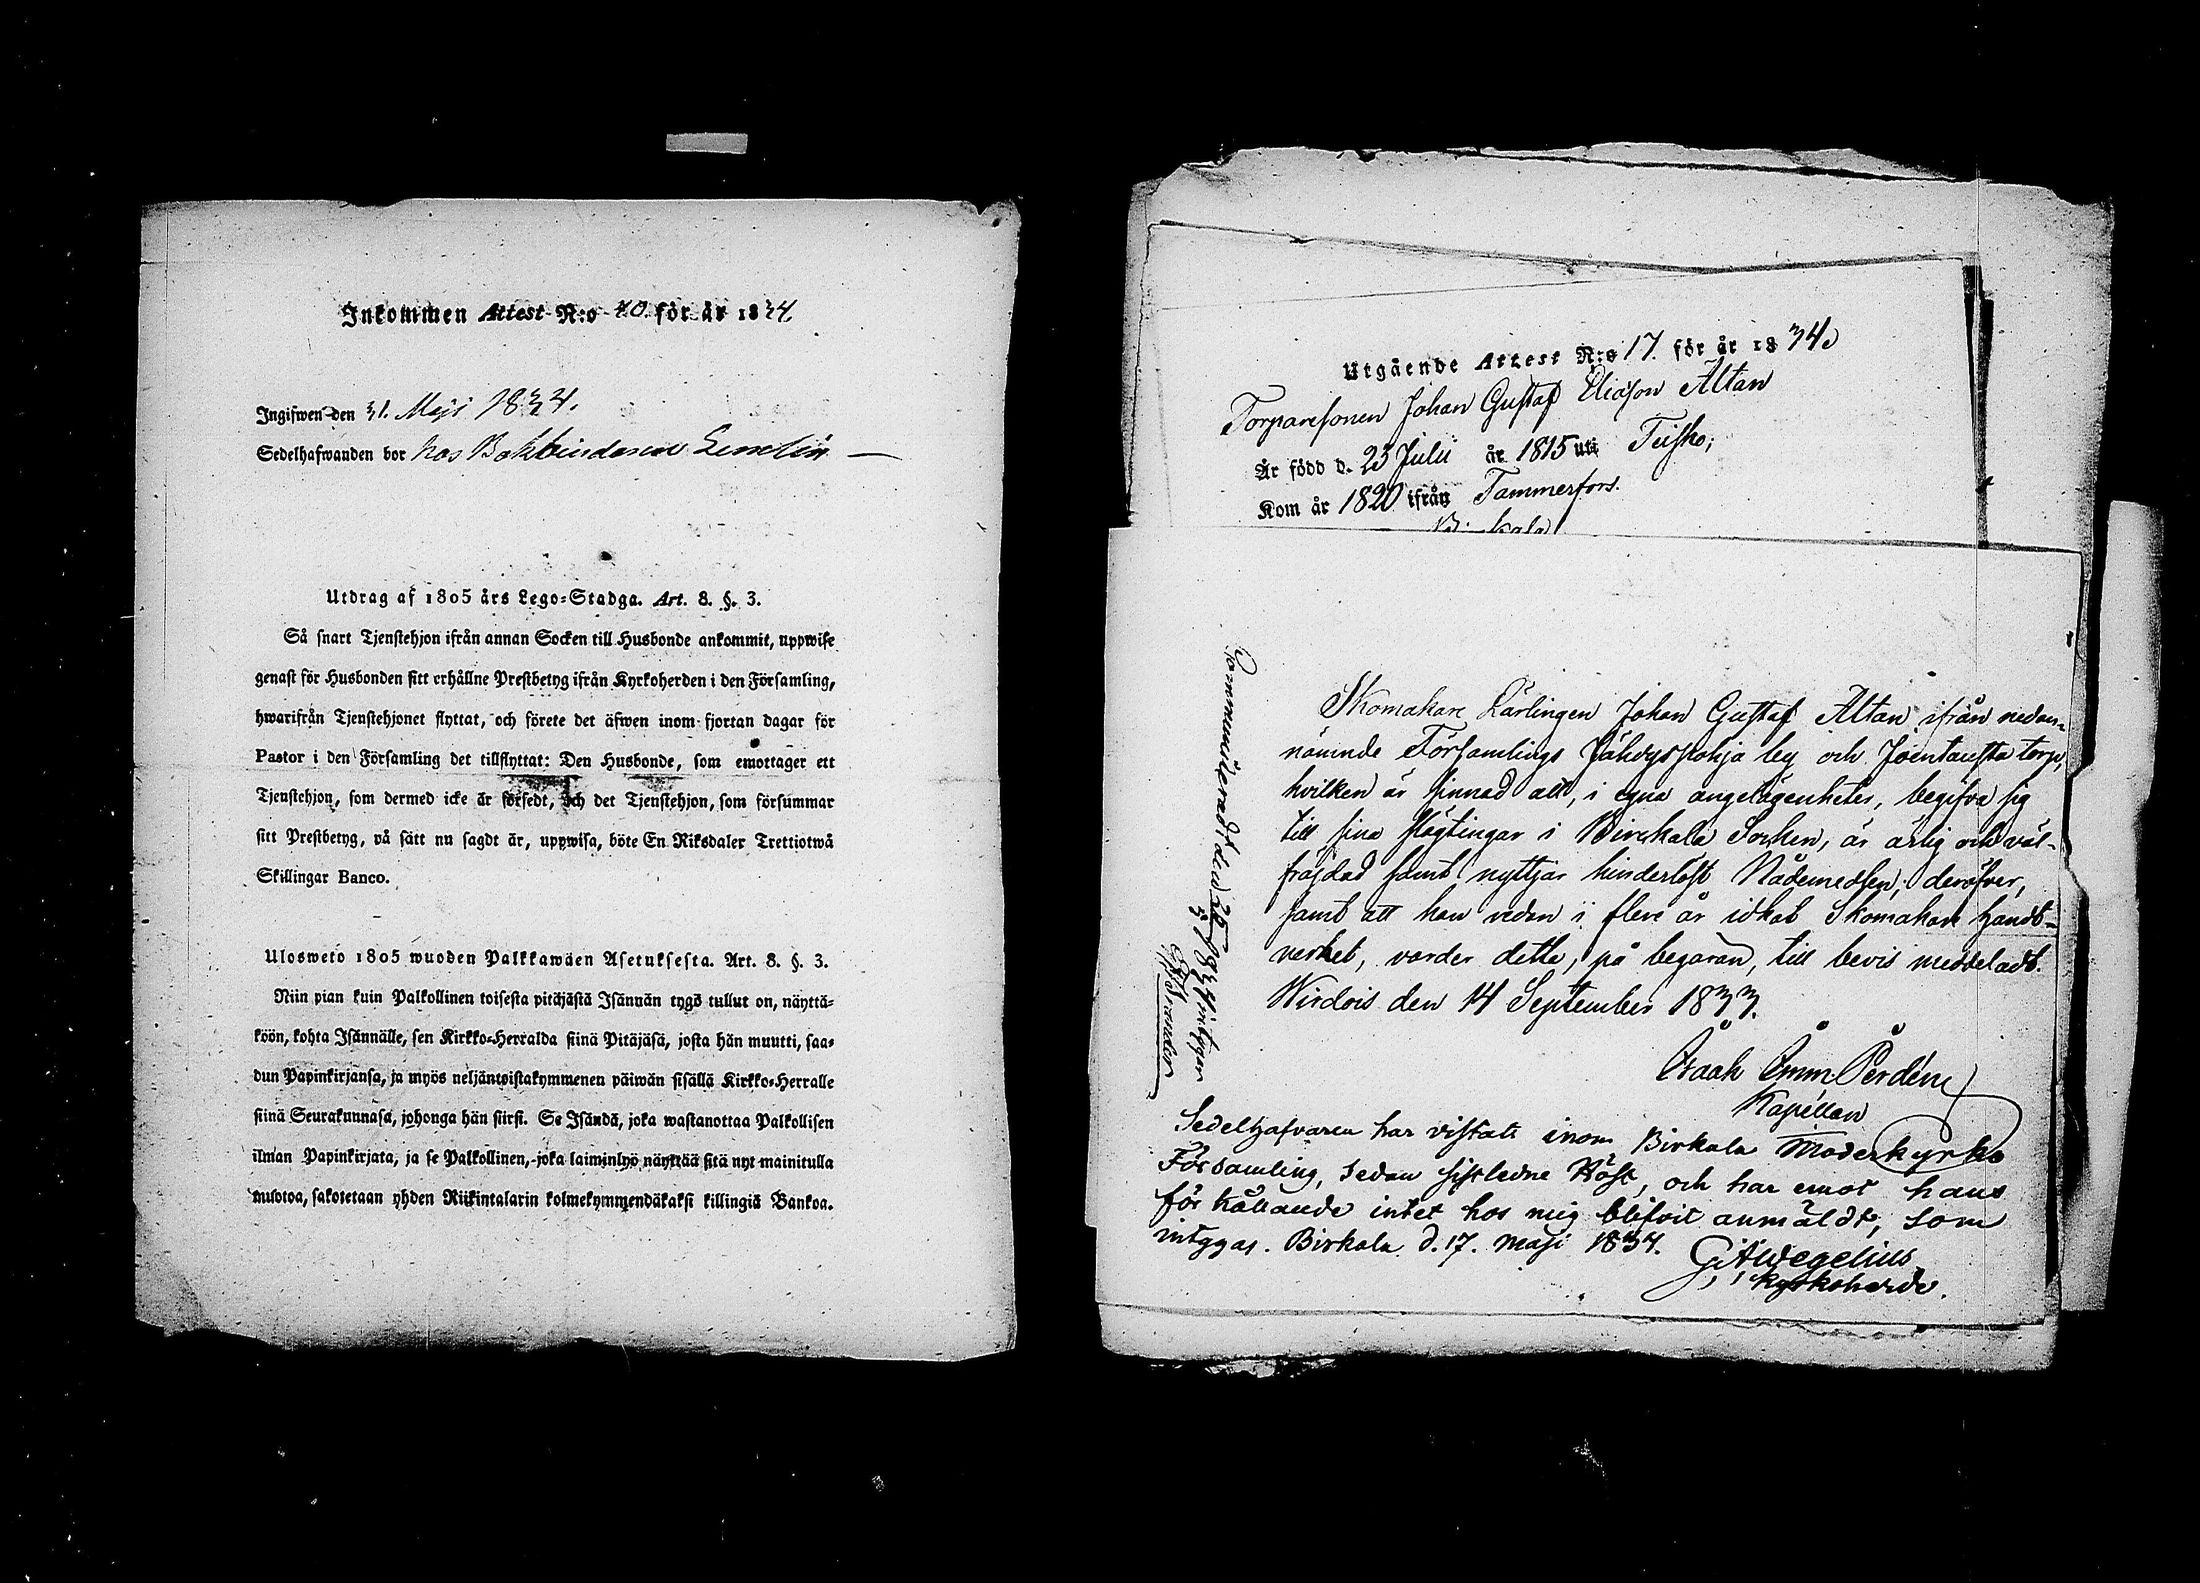 Inkommen Attest N:o 40. för år 1834
Ingifwen den 31. Maji 1834.
Sedelhafwanden bor hos Bokbindaren
Utdrag af 1805 års Lego=Stadga. Art. 8. §. 3.
Så snart Tjenstehjon ifrån annan Socken till Husbonde ankommit, uppwise
genast för Husbonden sitt erhållne Prestbetyg ifrån Kyrkoherden i den Församling,
hwarifrån Tjenstehjonet flyttat, och förete det äfwen inom fjortan dagar för
Pastor i den Församling det tillflyttat: Den Husbonde, som emottager ett
Tjenstehjon, som dermed icke är försedt, och det Tjenstehjon, som försummar
sitt Prestbetyg, på sätt nu sagdt är, uppwisa, böte En Riksdaler Trettiotwå
Skillingar Banco.
Ulosweto 1805 wuoden Palkkawäen Asetuksesta. Art. 8. §. 3.
Niin pian kuin Palkollinen toisesta pitäjästä Isännän tygö tullut on, näyttä=
köön, kohta Isännälle, sen Kirkko=Herralda siinä Pitäjäsä, josta hän muutti, saa=
dun Papinkirjansa, ja myös neljäntoistakymmenen päiwän sisällä Kirkko=Herralle
siinä Seurakunnasa, johonga hän siirsi. Se Isändä, joka wastanottaa Palkollisen
ilman Papinkirjata, ja se Palkollinen, joka laiminlyö näyttää sitä nyt mainitulla
muotoa, sakotetaan yhden Riikintalarin kolmekymmendäkaksi killingiä Bankoa.
Utgående Attest N:o 17. för år 1834.
Torparesonen Johan Gustaf Eliasson Altan
Är född d. 23 Julii år 1815 uti Teisko;
Kom år 1820 ifrån Tammerfors.
Birkala
Skomakare Lärlingen Johan Gustaf Altan, ifrån nedan=
nämnde Församlings Jähdyspohja by och Joentausta torp,
hvilken är sinnad att, i egna angelägenheter, begifva sig
till sina slägtingar i Birckala Socken, är ärlig och väl=
fräjdad samt nyttjar hinderlöst Nådemedlen; deröfver,
samt att han redan i flere år idkat Skomakare handt=
verket, varder detta, på begäran, till bevis meddeladt.
Wirdois den 14 September 1833.
Isaak Emm. Perdén
Kapellan
Sedelhafvaren har vistats inom Birkala Moderkyrko
Församling, sedan sistledne Höst, och har emot hans
förhållande intet hos mig blifvit anmäldt, som
intygas. Birkala d. 17. Maji 1834.
G. A. Wegelius
Kyrkoherde.